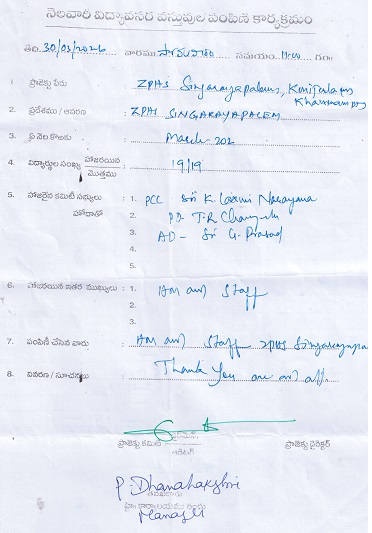 నెలవారీ విద్యావసర వస్తువుల పంపిణీ కార్యక్రమం
తేది. 30/03/2026 వారము సోమవారం సమయం. 11:00 గం॥
1. ప్రాజెక్టు పేరు : ZPHS Singarayapalem, Konijerla
2. ప్రదేశము / ఆవరణ : ZPHS SINGARAYAPALEM
3. ఏ నెల కొఱకు : March-202
4. విద్యార్థుల సంఖ్య హాజరయిన : 19/19
మొత్తము
5. హాజరైన కమిటీ సభ్యులు : 1. PCC Sri K Laxmi Narayana
హోదాతో 2. PD- T.R
3. AD- Sri G. Prasad
4.
5.
6. హాజరయిన ఇతర ముఖ్యులు : 1. HM and Staff
2.
3.
7. పంపిణీ చేసిన వారు : HM and Staff ZPHS
8. వివరణ / సూచనలు : Thank You one and all.
ప్రాజెక్టు కమిటీ ప్రాజెక్టు డైరెక్టర్
P Dhanalakshmi
Manager